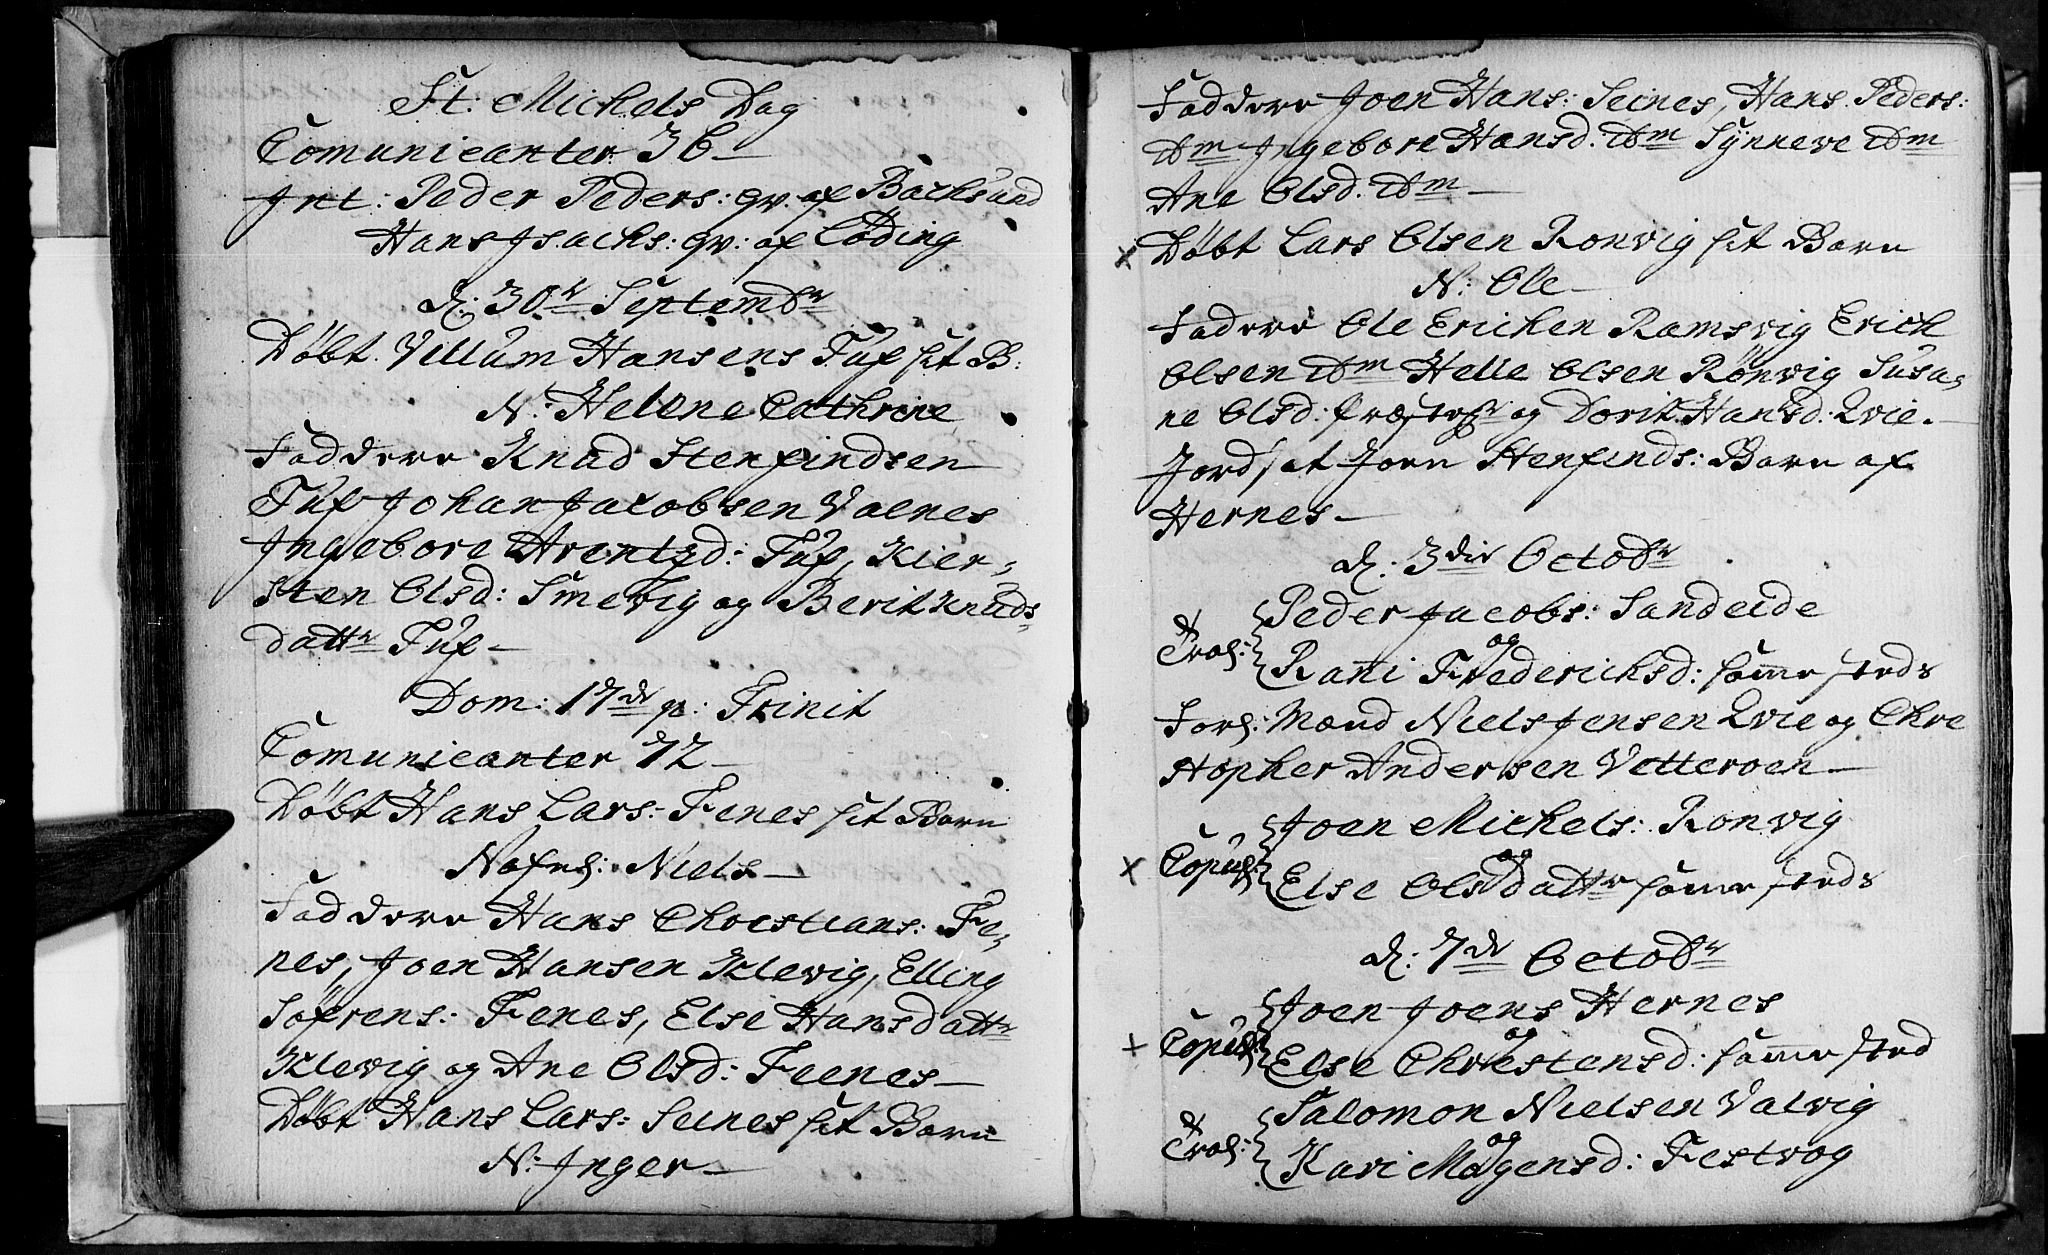 St: Michels Dag
Comunicanter 36
Int: Peder Peders: qv: af Backsund
Hans Isachs: qv: af Løding
d: 30te Septembr
Døbt Villum Hansens Tuf sit B:
N: Helene Cathrine
Faddere Knud Stenfindsen
Tuf Johan Jacobsen Valnes
Ingebore Arentzd: Tuf, Kier-
sten Olsd: Smevig og Berit Knuds-
dattr Tuf
Dom: 17de p: Trinit
Comunicanter 72
Døbt Hans Lars: Fenes sit Barn
Nafnl: Niels
Faddere Hans Christians: Fe-
nes, Joen Hansen Klevig, Elling
Søfrens: Fenes, Else Hansdattr
Klevig og Ane Olsd: Feenes
Døbt Hans Lars: Seines sit Barn
N: Inger
Faddere Joen Hans: Seines, Hans Peders:
ibm Ingebore Hansd: ibm Synneve ibm
Ane Olsd: ibm
Døbt Lars Olsen Ronvig sit Barn
N: Ole
Fadere Ole Ericksen Ramsvig Erich
Olsen ibm Helle Olsen Rönvig Susa-
ne Olsd: og Dorit Hansd: Qvie
Jordsat Joen Stenfinds: Barn af
Hernes
d: 3die Octobr
Trol: Peder Jacobs: Sandeide
og
Rani Frederichsd: samme steds
Forl: Mænd Niels Jensen Qvie og Chri
stopher Andersen Vetteroen
Joen Michels: Ronvig
Copul: og
Else Olsdattr samme steds
d: 7de Octobr
Joen Joens Hernes
Copul: og
Else Christensd: samme sted
Salomon Nielsen Valvig
Trol: og
Kari Mogensd: Festvog